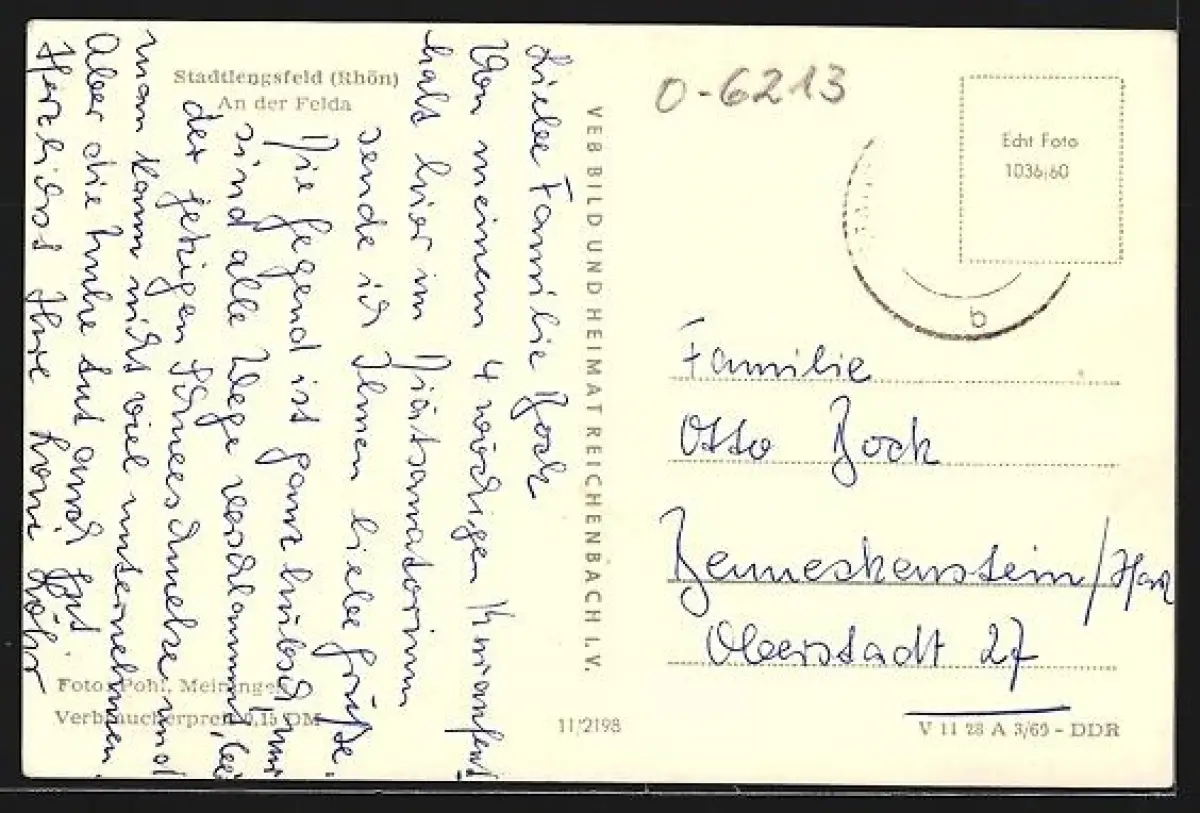 Stadtlengsfeld (Rhön)
An der Felda
Liebe Familie Bock
Von meinem 4 wöchigen Kuraufent-
halt hier im Diätsanatorium
sende ich Ihnen liebe Grüße.
Die Gegend ist ganz hübsch nur
sind alle Wege verschlammt, bei
der jetzigen Schneeschmelze und
man kann nicht viel unternehmen.
Aber die Ruhe tut auch gut.
Herzlichst Ihre
Foto: Pohl, Meiningen
Verbraucherpreis 0,15 DM
VEB BILD UND HEIMAT REICHENBACH I. V.
11/2198
O-6213
Echt Foto
1036/60
b
Familie
Otto Bock
Benneckenstein/Harz
Oberstadt 27
V 11 28 A 3/65 - DDR